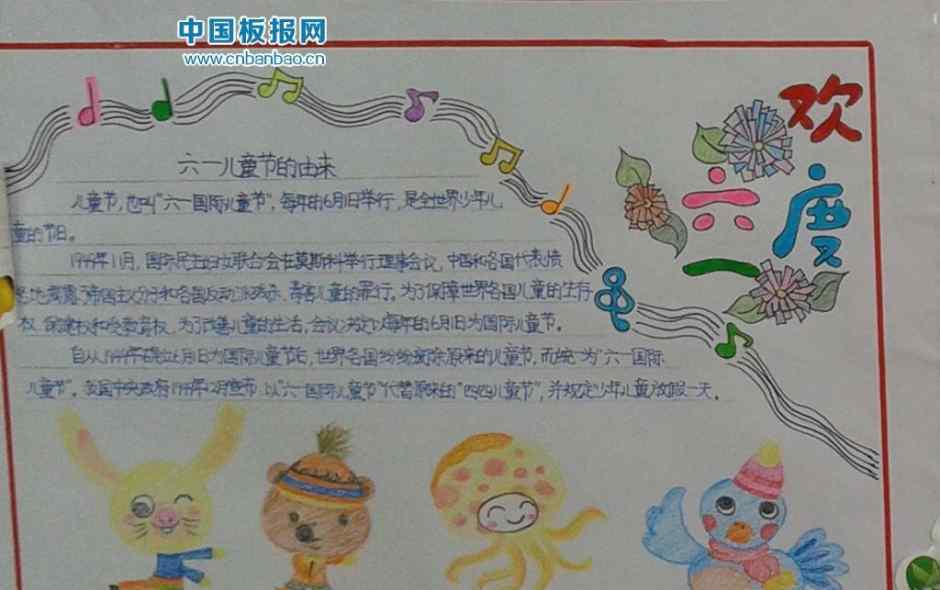 中国板报网
www.cnbanbao.cn
欢度
六一
六一儿童节的由来
儿童节,也叫"六一国际儿童节",每年的6月1日举行,是全世界少年儿
童的节日。
1949年11月,国际民主妇女联合会在莫斯科举行理事会议,中国和各国代表愤
怒地揭露了帝国主义分子和各国反动派残杀、毒害儿童的罪行。为了保障世界各国儿童的生存
权、保健权和受教育权,为了改善儿童的生活,会议决定以每年的6月1日为国际儿童节。
自从1949年确立6月1日为国际儿童节后,世界各国纷纷废除原来的儿童节,而统一为"六一国际
儿童节"。我国中央政府1949年12月宣布 以"六一国际儿童节"代替原来的"四四儿童节",并规定少年儿童放假一天。